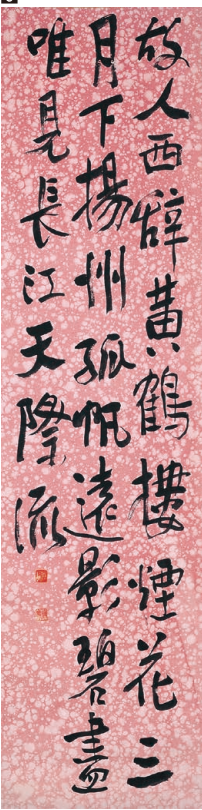 故人西辭黃鶴樓煙花三
月下揚州孤帆遠影碧盡
唯見長江天際流